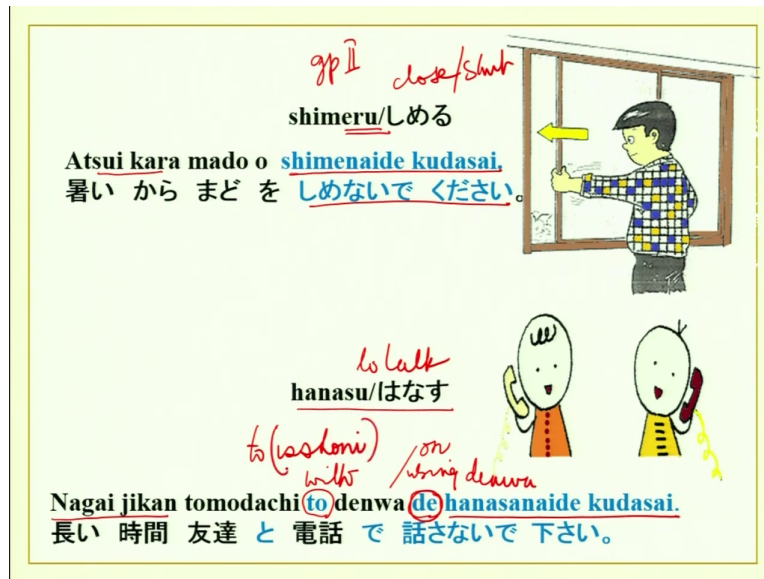 gp II close/shut
shimeru/しめる
Atsui kara mado o shimenaide kudasai,
暑い から まど を しめないで ください。
to talk
hanasu/はなす
to (isshoni) with /on using denwa
Nagai jikan tomodachi to denwa de hanasanaide kudasai.
長い 時間 友達 と 電話 で 話さないで 下さい。